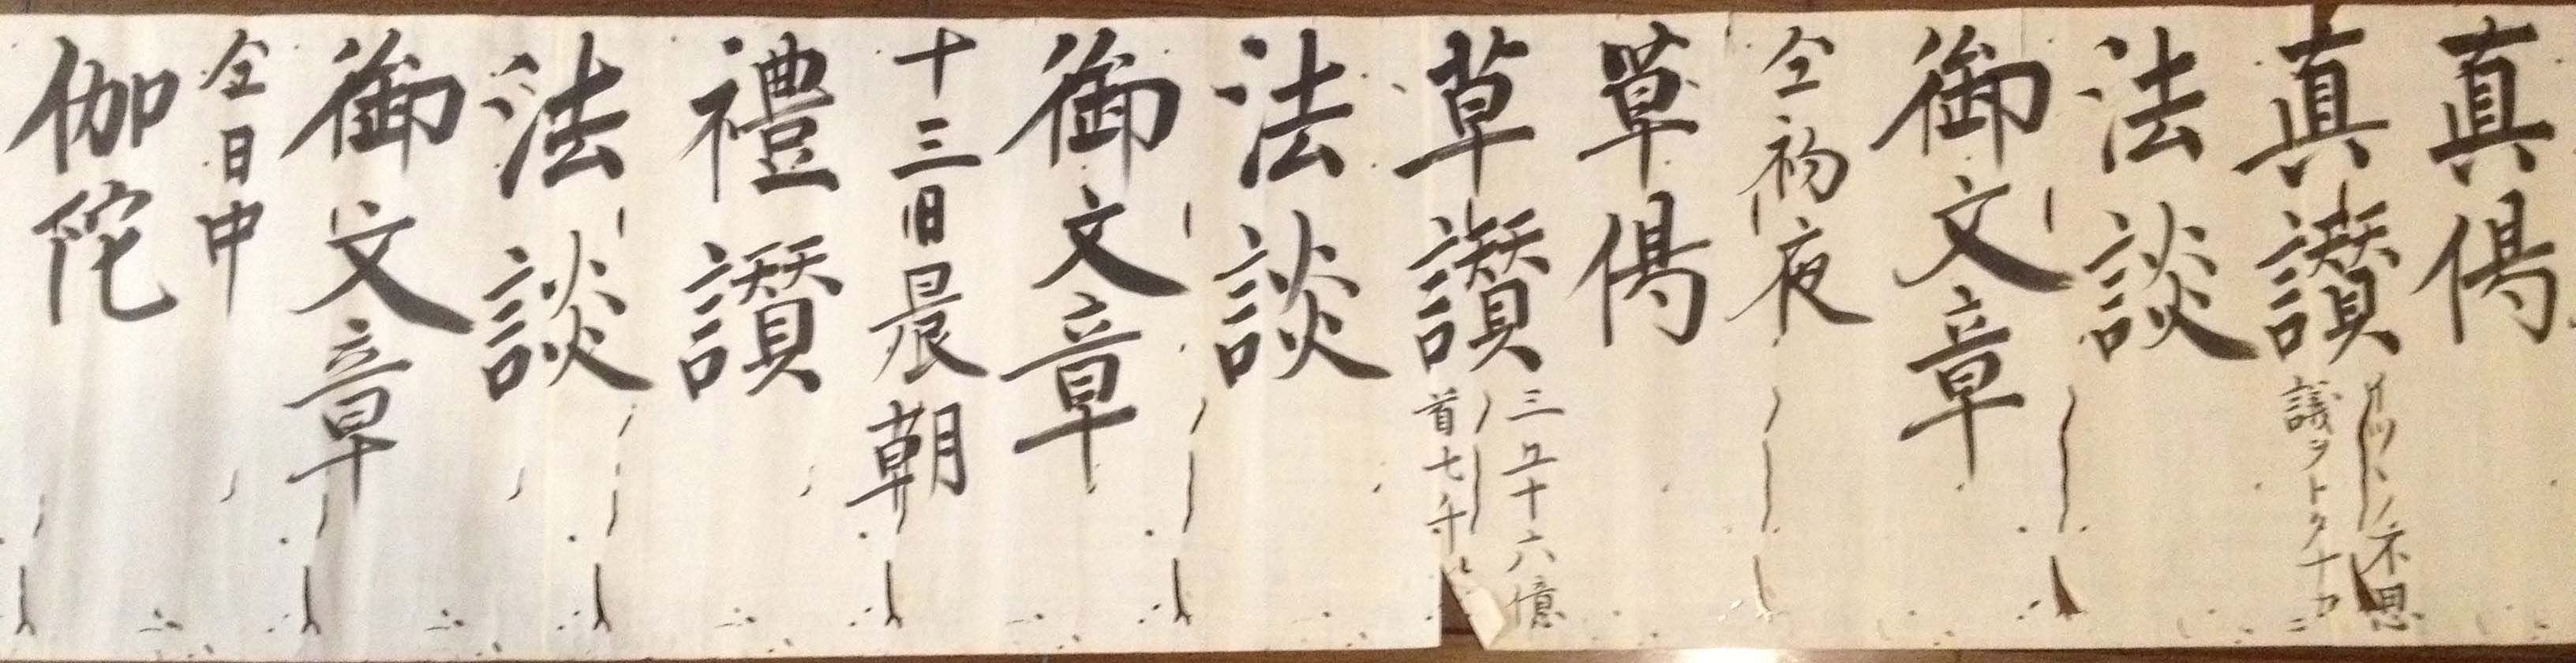 真偈
真讃
イツツノ不思
議ヲトクナカニ
法談
御文章
仝初夜
草偈
草讃
三五十六億
首七千
法談
御文章
十三日晨朝
禮讃
法談
御文章
仝日中
伽陀